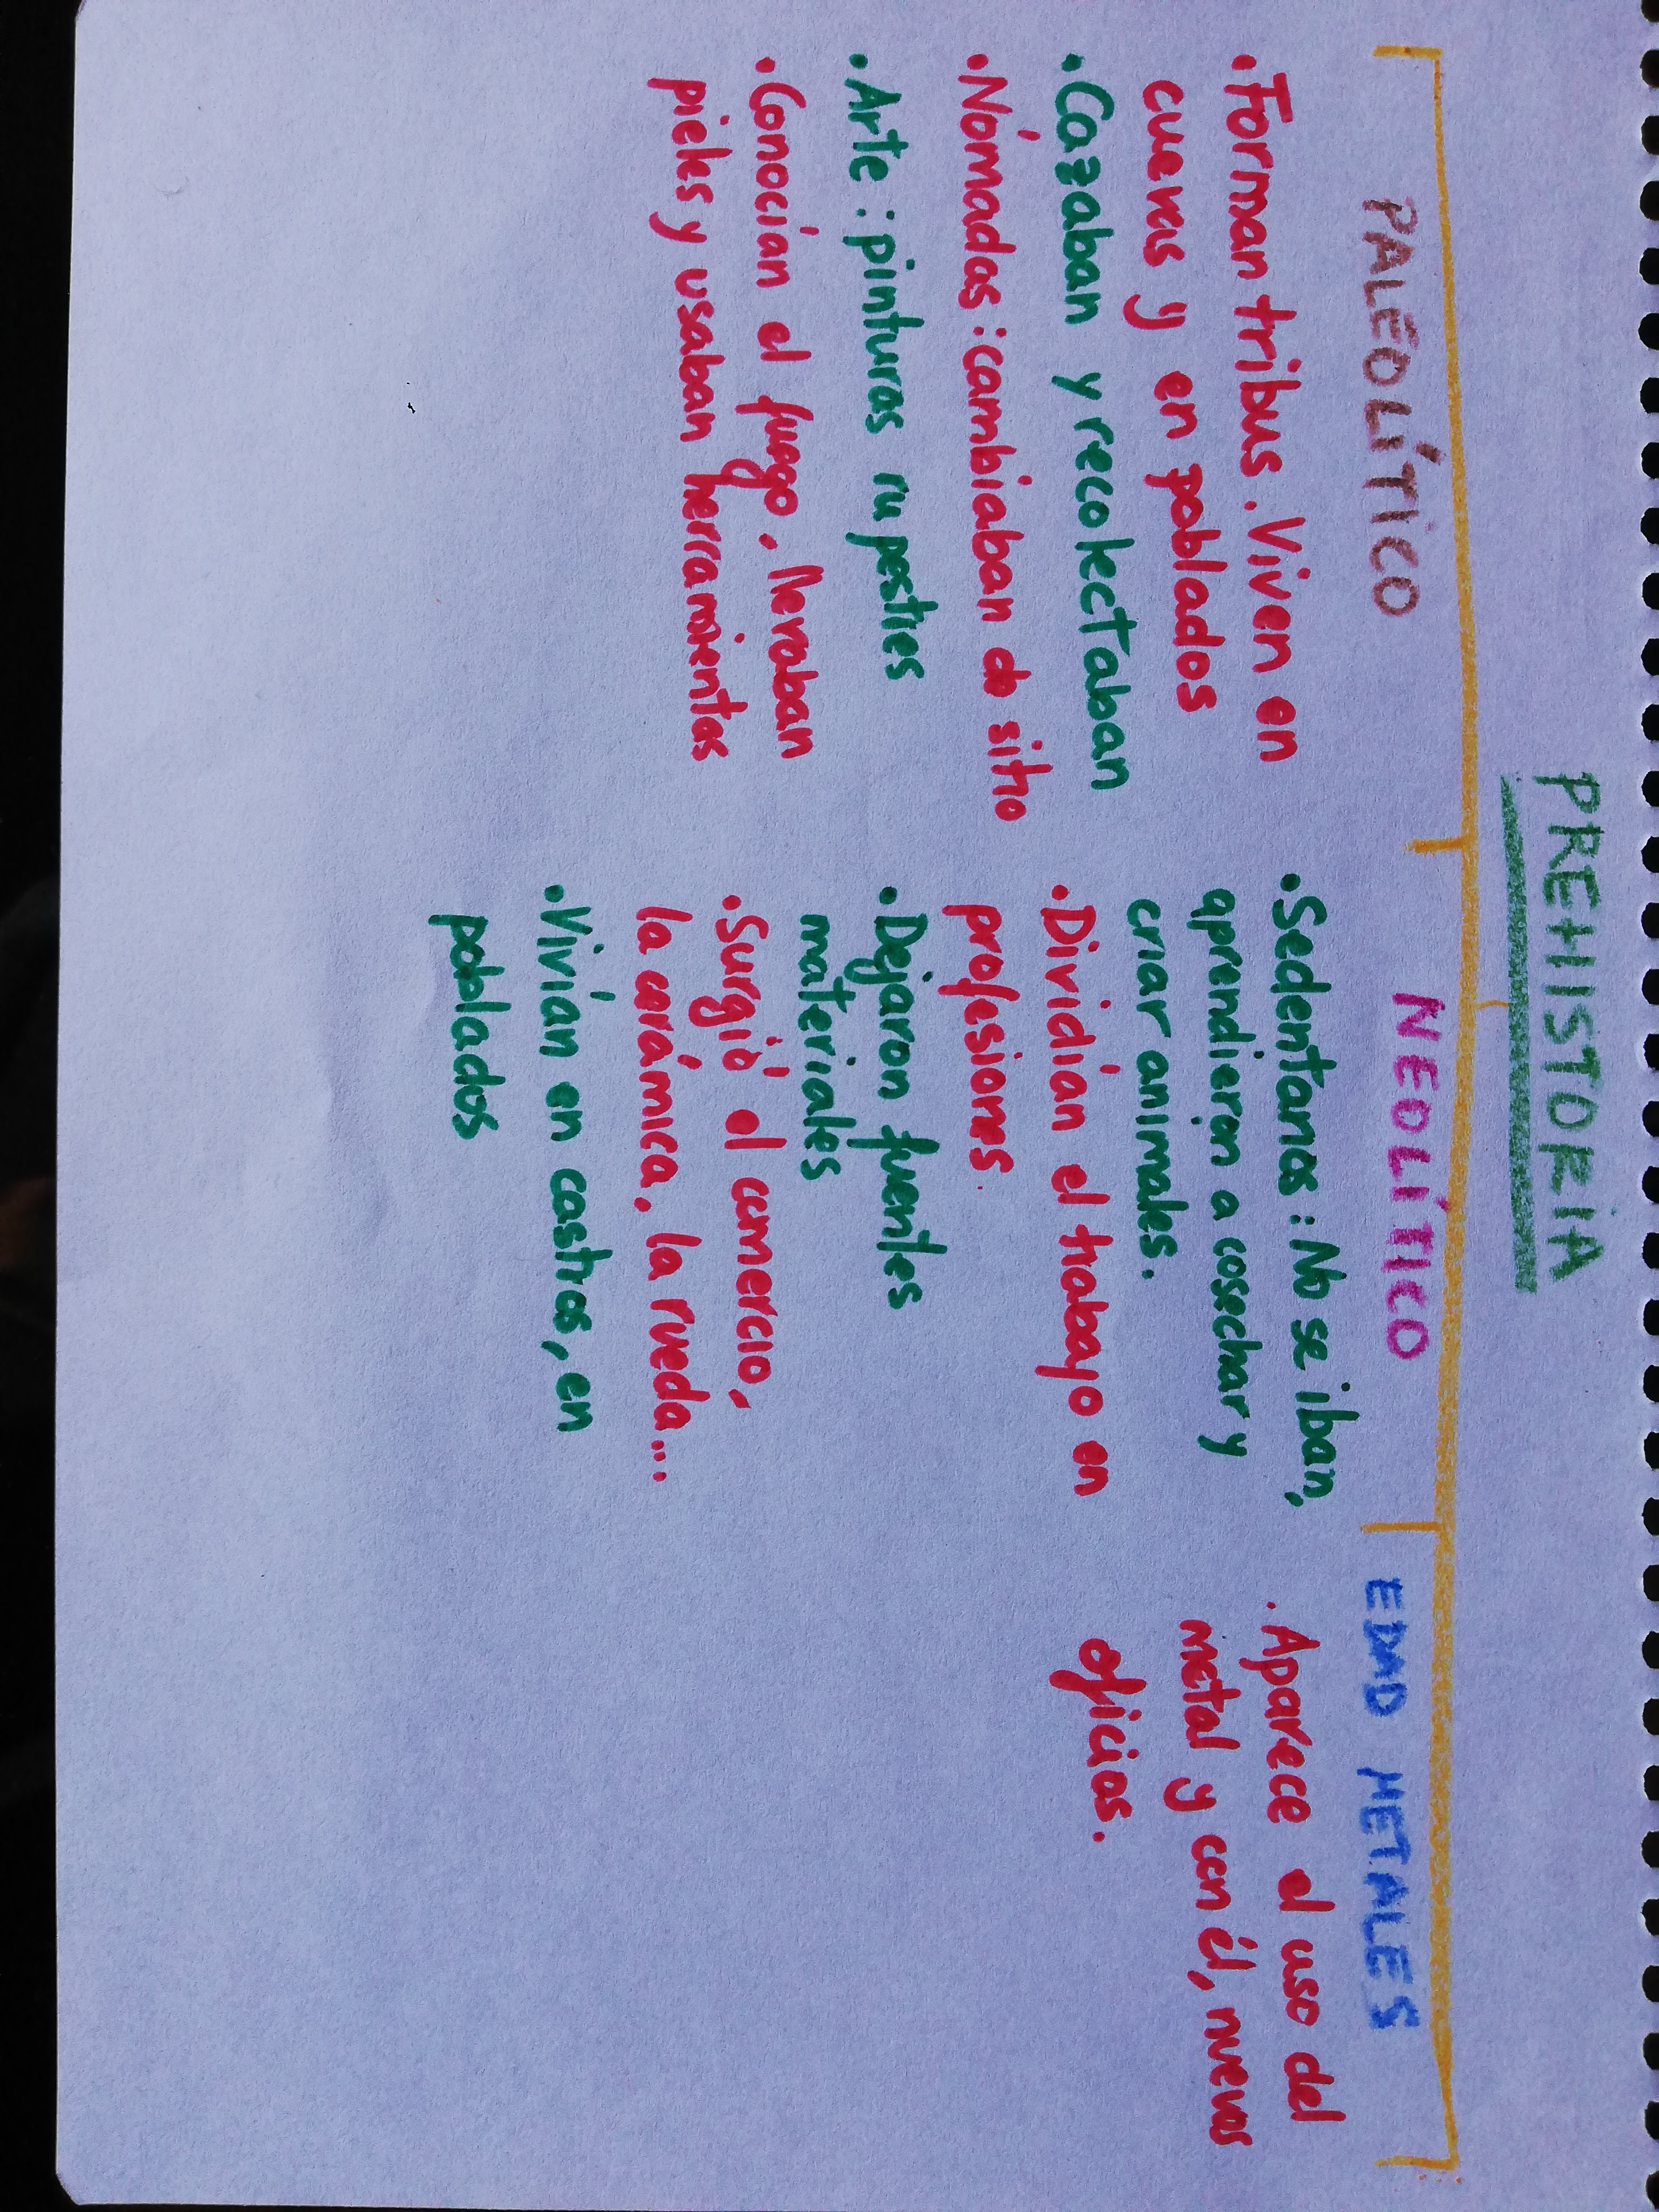 PREHISTORIA
PALEOLÍTICO
• Forman tribus. Viven en
cuevas y en poblados
• Cazaban y recolectaban
• Nómadas: cambiaban de sitio
• Arte: pinturas rupestres
• Conocían el fuego, llevaban
pieles y usaban herramientas
NEOLÍTICO
• Sedentarios: No se iban,
aprendieron a cosechar y
criar animales.
• Dividían el trabajo en
profesiones.
• Dejaron fuentes
materiales
• Surgió el comercio,
la cerámica, la rueda...
• Vivían en castros, en
poblados
EDAD METALES
• Aparece el uso del
metal y con él, nuevos
oficios.